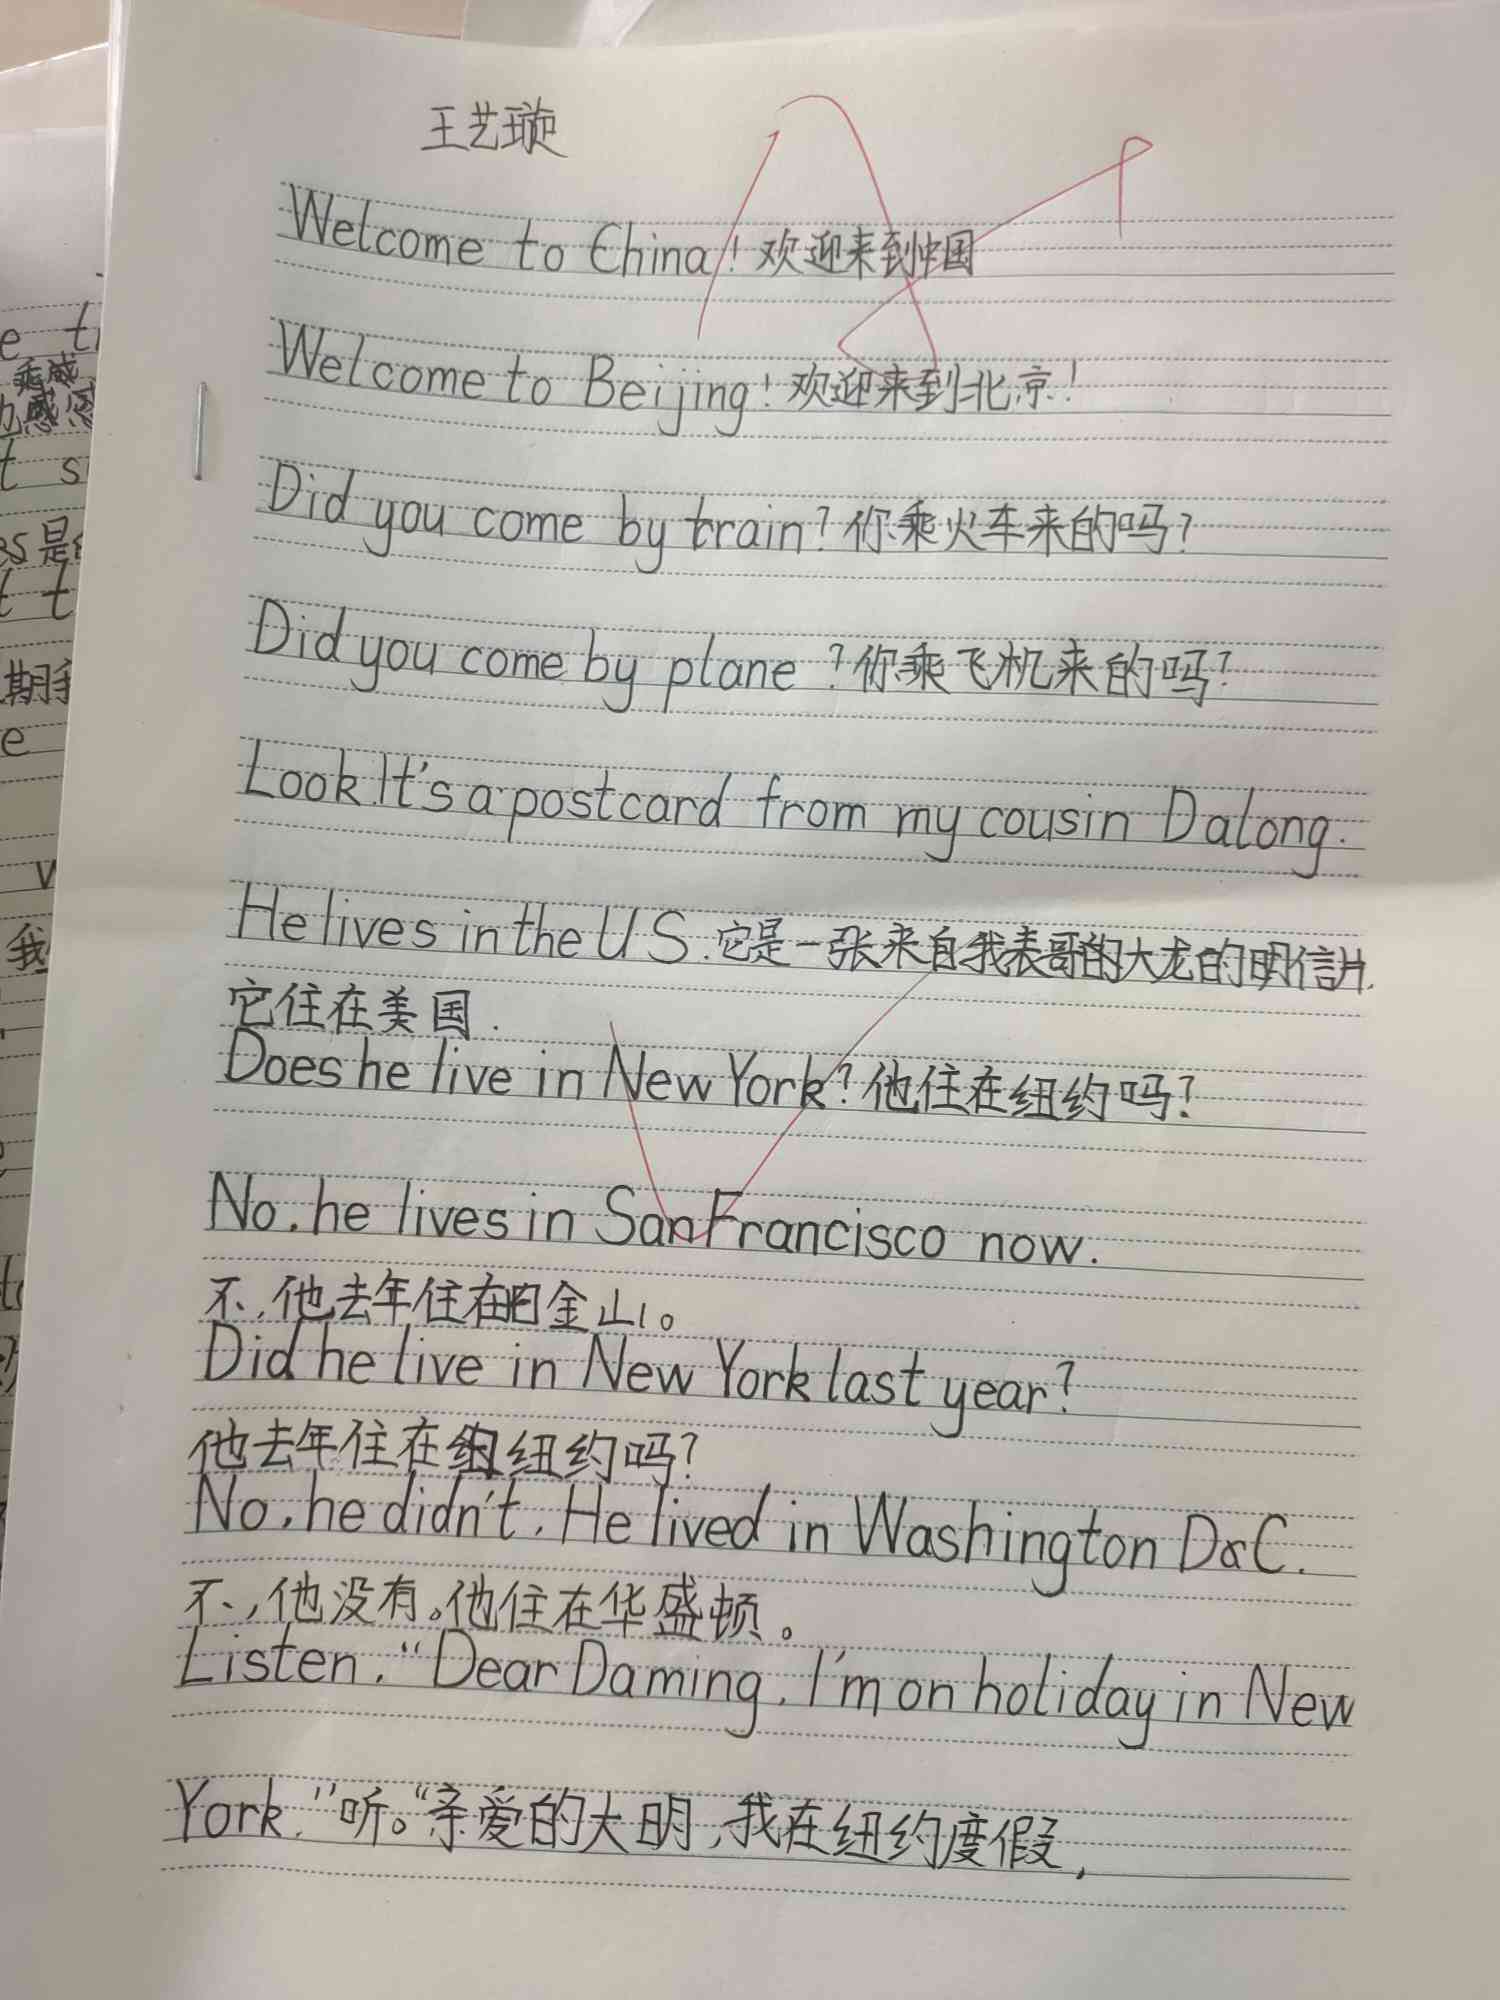 王艺璇
Welcome to China! 欢迎来到中国
Welcome to Beijing! 欢迎来到北京!
Did you come by train? 你乘火车来的吗?
Did you come by plane? 你乘飞机来的吗?
Look. It's a postcard from my cousin Dalong.
He lives in the US. 它是一张来自我表哥的大龙的明信片.
它住在美国.
Does he live in New York? 他住在纽约吗?
No, he lives in San Francisco now.
不,他去年住在旧金山。
Did he live in New York last year?
他去年住在纽约吗?
No, he didn't. He lived in Washington D.C.
不,他没有。他住在华盛顿。
Listen. "Dear Daming, I'm on holiday in New
York." 听。"亲爱的大明,我在纽约度假,
e tr
乘感
感
t s
是
t t
期我
e
w
我